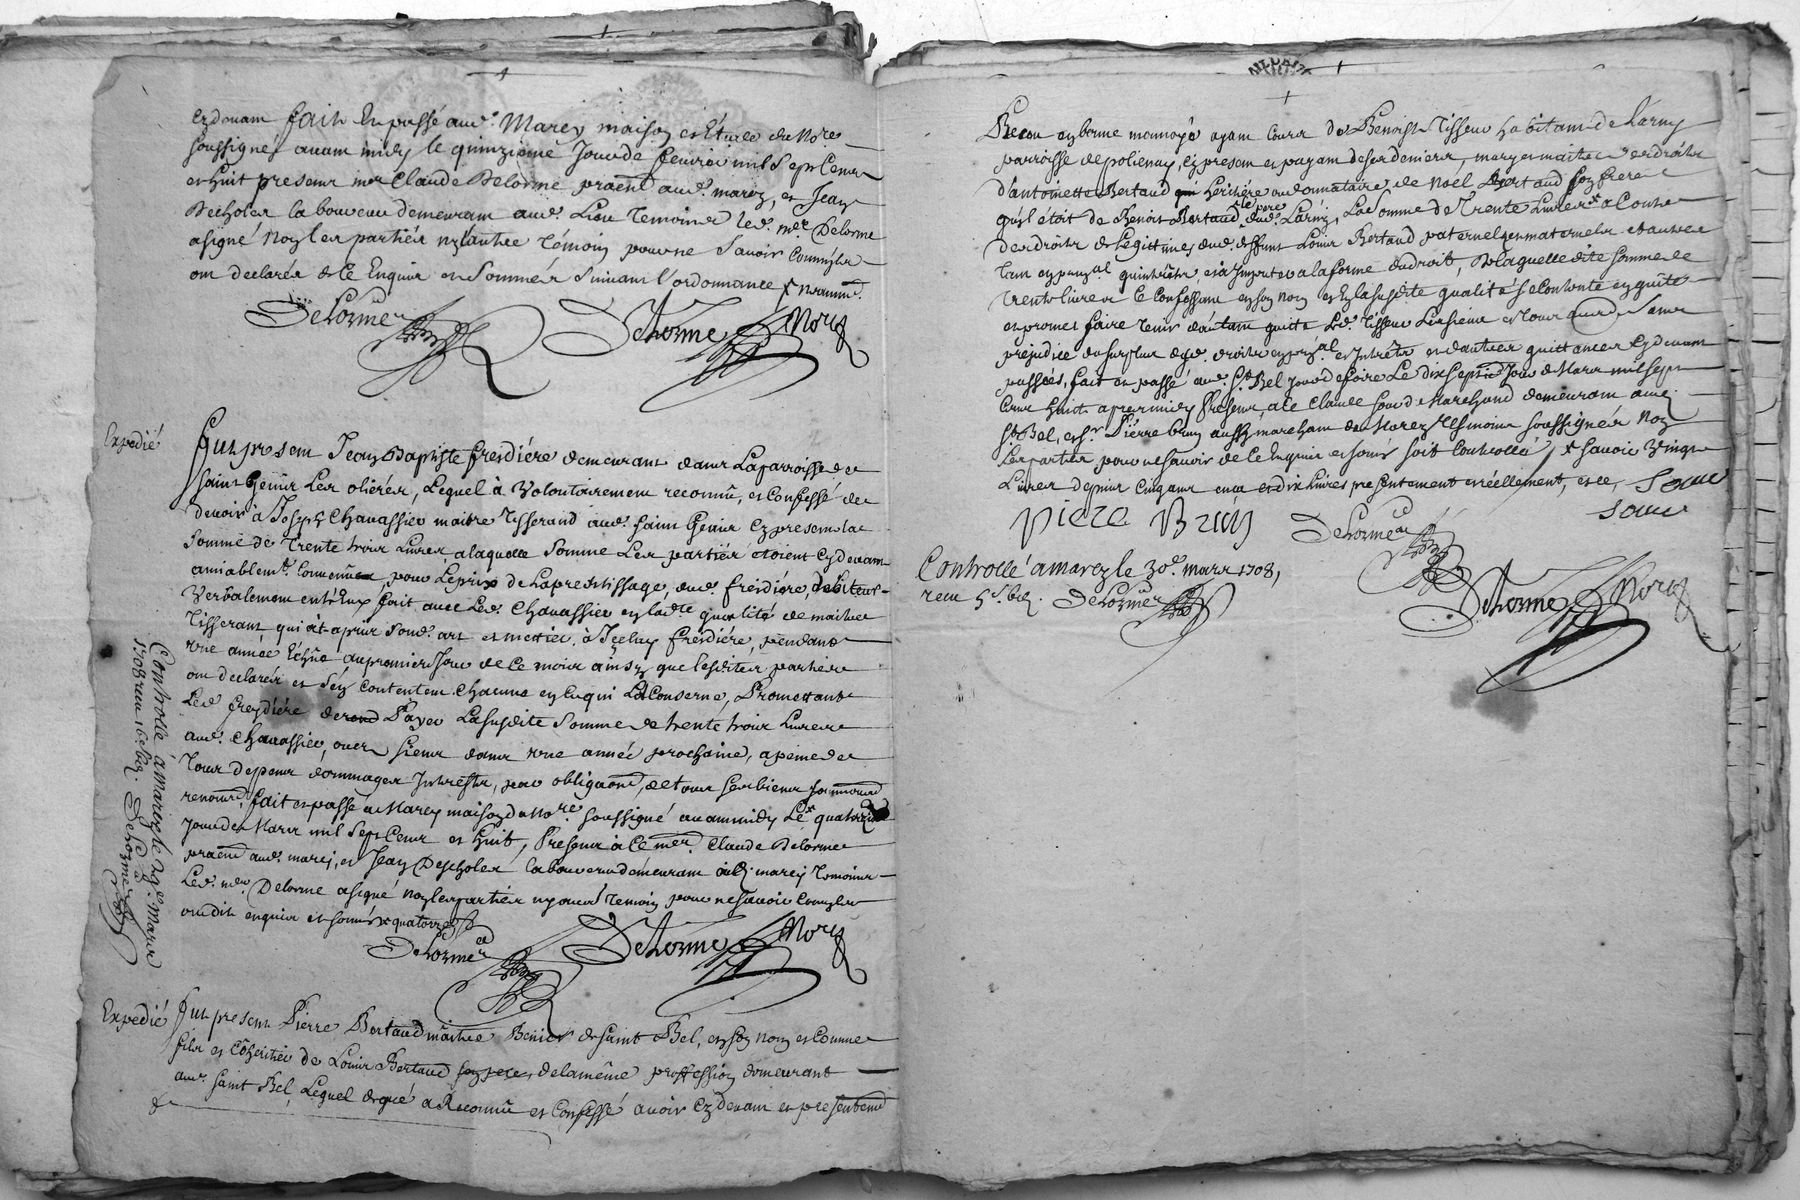 cydevant fait En passé aud. Marcy maison et Étude du No.re
soussigné avant midy le quinziême Jour de fevrier mil Sept Cents
et huit presens me.r Claude Delorme praen.t aud. marcy, et Jean
Descholes laboureur demeurant aud. Lieu Temoins led. me.r Delorme
a signé Non les partiés ny lautre Témoin pour ne Savoir Comm'ils
ont declarés de Ce Enquis et Sommés Suivant l'ordonnance
Delorme Delorme No.re
Expedié
fut present Jean Baptiste freidiére demeurant dans La parroisse de
saint Genis Les oliéres, Lequel à Volontairement reconnu, et Confessé
devoir à Joseph Chavassieu maitre Tisserand aud. saint Genis Cy present la
Somme de Trente trois Livres a laquelle Somme Les partiés étoient Cy devant
amiablem.t Convenues pour Le prix de L'aprentissage, dud. freidiére, debiteur
Verbalement entr'Eux fait avec Led. Chavassieu en lad.te qualité de maitre
Tisserant qui à apris Sond. art et metier à Jceluy freidiére, pendant
une année Échüe au premier Jour de Ce mois ainsy que lesdites parties
ont declarés et s'en Contentent Chacune en Ce qui La Conserne, Promettant
Led. freydiére de Payer La susdite Somme de trente trois Livres
aud. Chavassieu, ou es Siens dans une année prochaine, a peine de
Tous depens dommages Jnterests, par obliga.on de tous ses biens
renon.on fait et passé a Marcy maison du No.re soussigné avant midy Le quatorze
Jour de Mars mil Sept Cents et huit, Presens à Ce me.r Claude Delorme
praen.t aud. marcy, et Jean Descholes laboureur demeurant aud. marcy Temoins
Led. me.r Delorme a signé Non les partiés ny laut.e Temoin pour ne savoir Comm'ils
ont dit enquis et somés quatorze
Delorme Delorme No.re
Controllé à marcy le 29e. mars
1708 reçu 16 s. 6 d. Delorme
Expedié
fut present Pierre Bertaud maitre Benier de saint Bel, en son Nom et Comme
fils et Côheritier de Louis Bertaud son pere, de la même proffession demeurant
aud. saint Bel, Lequel de gré a Reconnu et Confessé avoir Cy devant et presentement
Recu en bonne monnoye ayant Cours de Benoist Tisseur habitant de Lárny
parroisse de polienay, Cy present et payant de ses deniers, mary et maitre des droits
d'antoinette Bertaud heritiére ou donnataire, de Noël Bertaud son frere
qu'il étoit de Benoit Bertaud le pere dud. Larny, La Somme de Trente Livres a Conte
des droits de Legittimes dud. deffunt Louis Bertaud paternels et maternels et autres
tant en prinp.al qu'interêts et à Jmputer a la forme du droit, De laquelle dite somme de
trente livres Le Confessant en son Nom et En la susdite qualité se Contente en quitte
et promet faire tenir d'autant quitte Led. Tisseur Les siens et Tous autres Sans
préjudice du surplus desd. droits en prinp.al et Jnterêts et d'autres quittances Cydevant
passées, fait et passé aud. S.t Bel Jour de foire Le dix septié Jour de Mars mil sept
Cens huit apres midy Presens, a Ce Claude Marchand demeurant aud.
S.t Bel, et s.r Pierre brun aussy marchant de Marcy Tesmoins soussignés Non
Les parties pour ne savoir de Ce Enquis et somés soit Controllé, x savoir Vingt
Livres depuis Cinq ans en ça et dix livres presentement et réellement, et ce, Sans
Sans
piere Brun Delorme
Controllé a marcy le 30e. mars 1708,
reçu 5 s. 6 d. Delorme
Delorme No.re